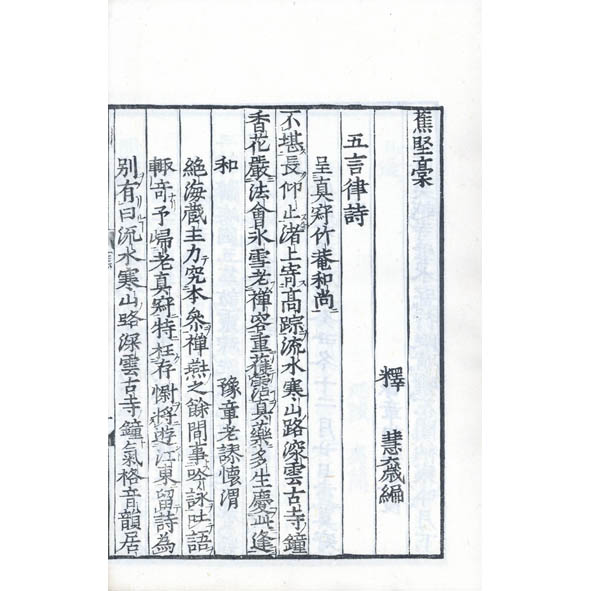 蕉堅藁
釋　慧　編
五言律詩
呈真寂竹菴和尚
不堪長仰止渚上寄髙踪流水寒山路深雲古寺鐘
香花嚴法會氷雪老禪容重藿霑真藥多生慶此逢
和　豫章老謙懷渭
絶海藏主力究本参禪燕之餘間事吟詠吐語
輙竒予歸老真寂特枉存慰將遊江東留詩為
别有曰流水寒山路深雲古寺鐘氣格音韻居